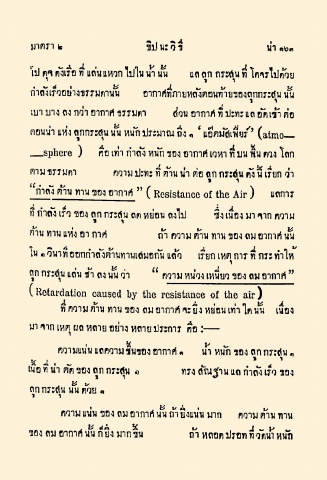 มาตรา ๒ ขิป นะ วิ ธี น่า ๑๖๓
ไป ดุจ ดังเรือ ที่ แล่นแหวก ไปใน น้ำ นั้น แล ลูก กระสุน ที่ โคจรไปด้วย
กำลังเร็วอย่างธรรมดานั้น อากาศที่ภายหลังตอนท้ายของลูกกระสุน นั้น
เบา บาง ลง กว่า อากาศ ธรรมดา ส่วน อากาศ ที่ ปะทะ แล อัด เข้า ต่อ
ตอนน่า แห่ง ลูกกระสุน นั้น หนัก ประมาณ ถึง ๑ "แอ๊ตมัสเฟียร์" (atmo—
—sphere) คือ เท่า กำลัง หนัก ของ อากาศ เวหา ที่ บน พื้น ดวง โลก
ตาม ธรรมดา ความ ปะทะ ที่ ต้าน น่า ต่อ ลูก กระสุน ดัง นี้ เรียก ว่า
"กำลัง ต้าน ทาน ของ อากาศ" (Resistance of the Air) แลการ
ที่ กำลัง เร็ว ของ ลูก กระสุน ลด หย่อน ลงไป ซึ่ง เนื่อง มา จาก ความ
ต้าน ทาน แห่ง อา กาศ ถ้า ความ ต้าน ทาน ของ ลม อากาศ นั้น
ใน ๑ วินาที ออกกำลังต้านทานเสมอกัน แล้ว เรียก เหตุ การ ที่ กระทำให้
ลูก กระสุน แล่น ช้า ลง นั้น ว่า "ความ หน่วง เหนี่ยว ของ ลม อากาศ"
(Retardation caused by the resistance of the air)
ที่ ความ ต้าน ทาน ของ ลม อากาศ จะ ยิ่ง หย่อน เท่า ใด นั้น เนื่อง
มา จาก เหตุ ผล หลาย อย่าง หลาย ประการ คือ :—
ความแน่น แลความ ชื้นของ อากาศ ๑ น้ำ หนัก ของ ลูก กระสุน ๑
เนื้อ ที่ น่า ตัด ของ ลูก กระสุน ๑ ทรง สัณฐาน แล กำลัง เร็ว ของ
ลูก กระสุน นั้น ด้วย ๑
ความ แน่น ของ ลม อากาศ นั้น ถ้า ยิ่งแน่น มาก ความ ต้าน ทาน
ของ ลม อากาศ นั้น ก็ ยิ่ง มาก ขึ้น ถ้า หลอด ปรอท ที่ วัดน้ำ หนัก